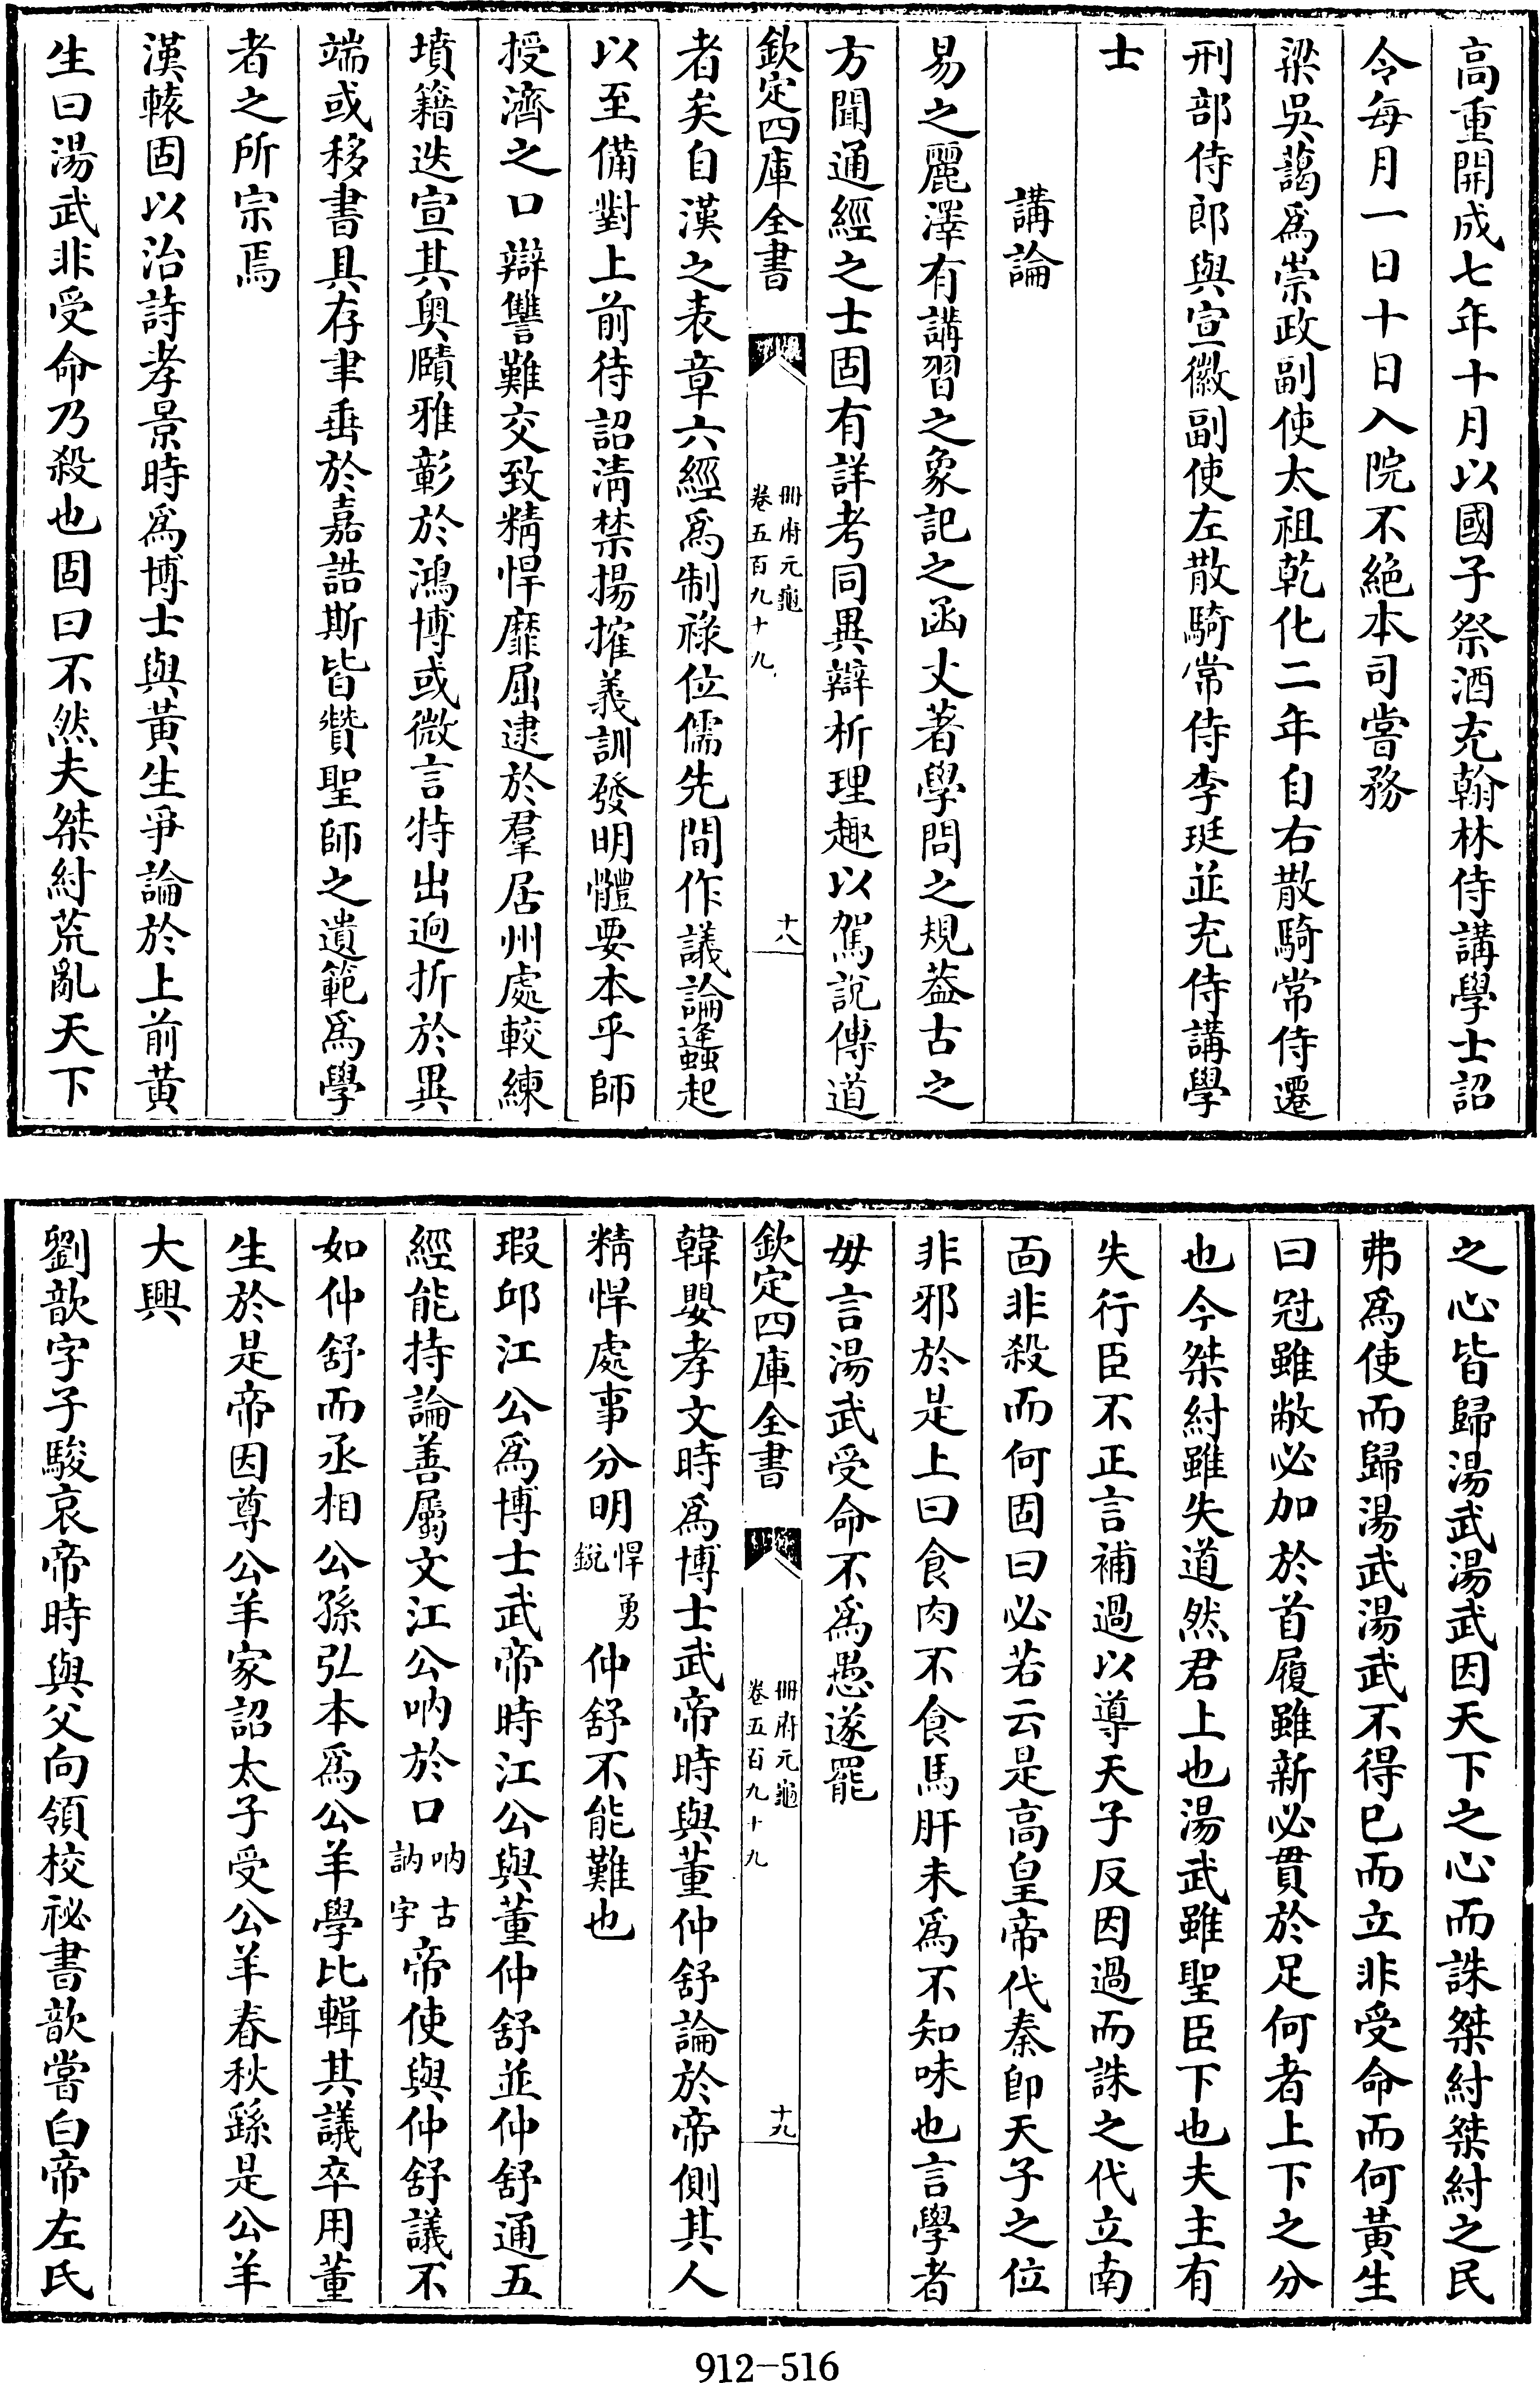 高重開成七年十月以國子祭酒充翰林侍講學士詔
令每月一日十日入院不絶本司嘗務
梁吳藹爲崇政副使太祖乾化二年自右散騎常侍遷
刑部侍郎與宣徽副使左散騎常侍李珽並充侍講學
士
講論
易之麗澤有講習之象記之函丈著學問之規葢古之
方聞通經之士固有詳考同異辯析理趣以駕說傳道
欽定四庫全書
冊府元龜
卷五百九十九
十八
者矣自漢之表章六經爲制祿位儒先間作議論蠭起
以至備對上前待詔清禁揚搉義訓發明體要本乎師
授濟之口辯讐難交致精悍靡屈逮於羣居州處較練
墳籍迭宣其奥賾雅彰於鴻博或微言特出逈折於異
端或移書具存聿垂於嘉誥斯皆贊聖師之遺範爲學
者之所宗焉
漢轅固以治詩孝景時爲博士與黄生爭論於上前黄
生曰湯武非受命乃殺也固曰不然夫桀紂荒亂天下
之心皆歸湯武湯武因天下之心而誅桀紂桀紂之民
弗爲使而歸湯武湯武不得已而立非受命而何黄生
曰冠雖敝必加於首履雖新必貫於足何者上下之分
也今桀紂雖失道然君上也湯武雖聖臣下也夫主有
失行臣不正言補過以導天子反因過而誅之代立南
面非殺而何固曰必若云是高皇帝代秦卽天子之位
非邪於是上曰食肉不食馬肝未爲不知味也言學者
毋言湯武受命不爲愚遂罷
欽定四庫全書
冊府元龜
卷五百九十九
十九
韓嬰孝文時爲博士武帝時與董仲舒論於帝側其人
精悍處事分明悍勇銳仲舒不能難也
瑕邱江公爲博士武帝時江公與董仲舒並仲舒通五
經能持論善屬文江公吶於口吶古訥字帝使與仲舒議不
如仲舒而丞相公孫弘本爲公羊學比輯其議卒用董
生於是帝因尊公羊家詔太子受公羊春秋繇是公羊
大興
劉歆字子駿哀帝時與父向領校祕書歆嘗白帝左氏
912-516